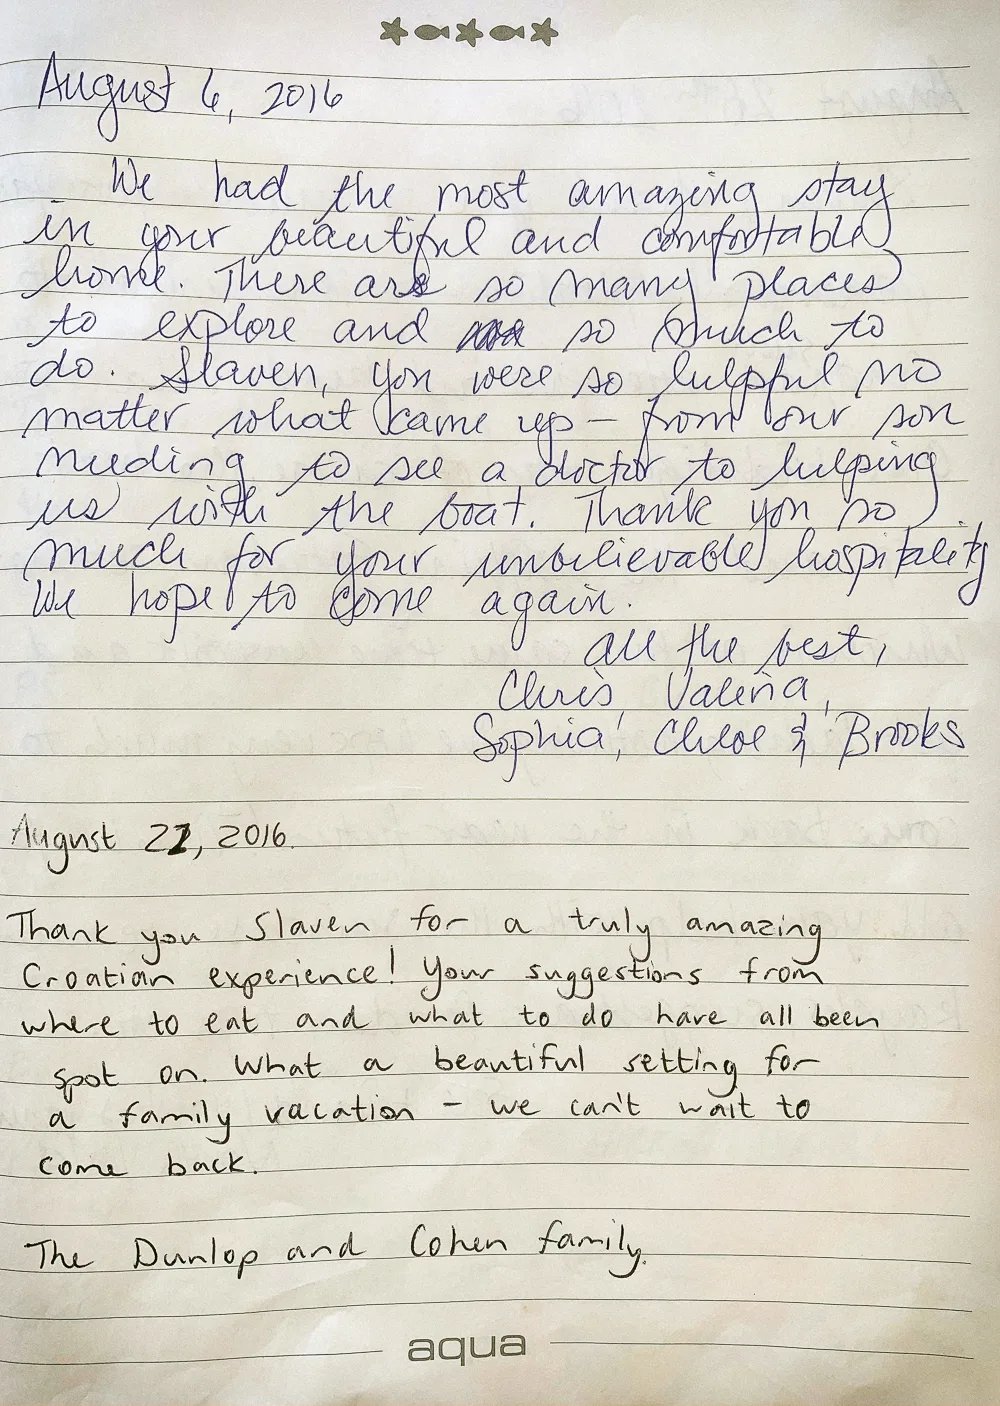 August 6, 2016
We had the most amazing stay
in your beautiful and comfortable
home. There are so many places
to explore and so much to
do. Slaven, you were so helpful no
matter what came up – from our son
needing to see a doctor to helping
us with the boat. Thank you so
much for your unbelievable hospitality.
We hope to come again.
All the best,
Chris, Valeria,
Sophia, Chloe & Brooks
August 22, 2016.
Thank you Slaven for a truly amazing
Croatian experience! Your suggestions from
where to eat and what to do have all been
spot on. What a beautiful setting for
a family vacation – we can't wait to
come back.
The Dunlop and Cohen family.
aqua